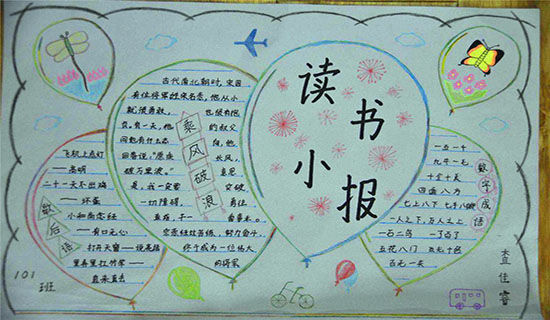 读书小报
古代南北朝时,宋国
有位将军姓宗名悫,他从小
就很勇敢,也很有抱
负,有一天,他的叔父
问他有什么志向,他
回答说,"愿乘长风,
破万里浪。"意思
是,我一定要突破
一切障碍,勇往
直前,干一番事业。
宗悫经过苦练,努力奋斗,
终于成为一位伟大
的将军
乘风破浪
飞机上点灯
——高明
二十一天不出鸡
——坏蛋
小和尚念经
——有口无心
打开天窗——说亮话
里弄里扛竹竿
直来直去
歇后语
一五一十
九牛一毛
十全十美
四面八方
七上八下 七手八脚
一人之下,万人之上
一石二鸟 一了百了
五花八门 五光十色
百无一失
数字成语
101
班
查佳睿